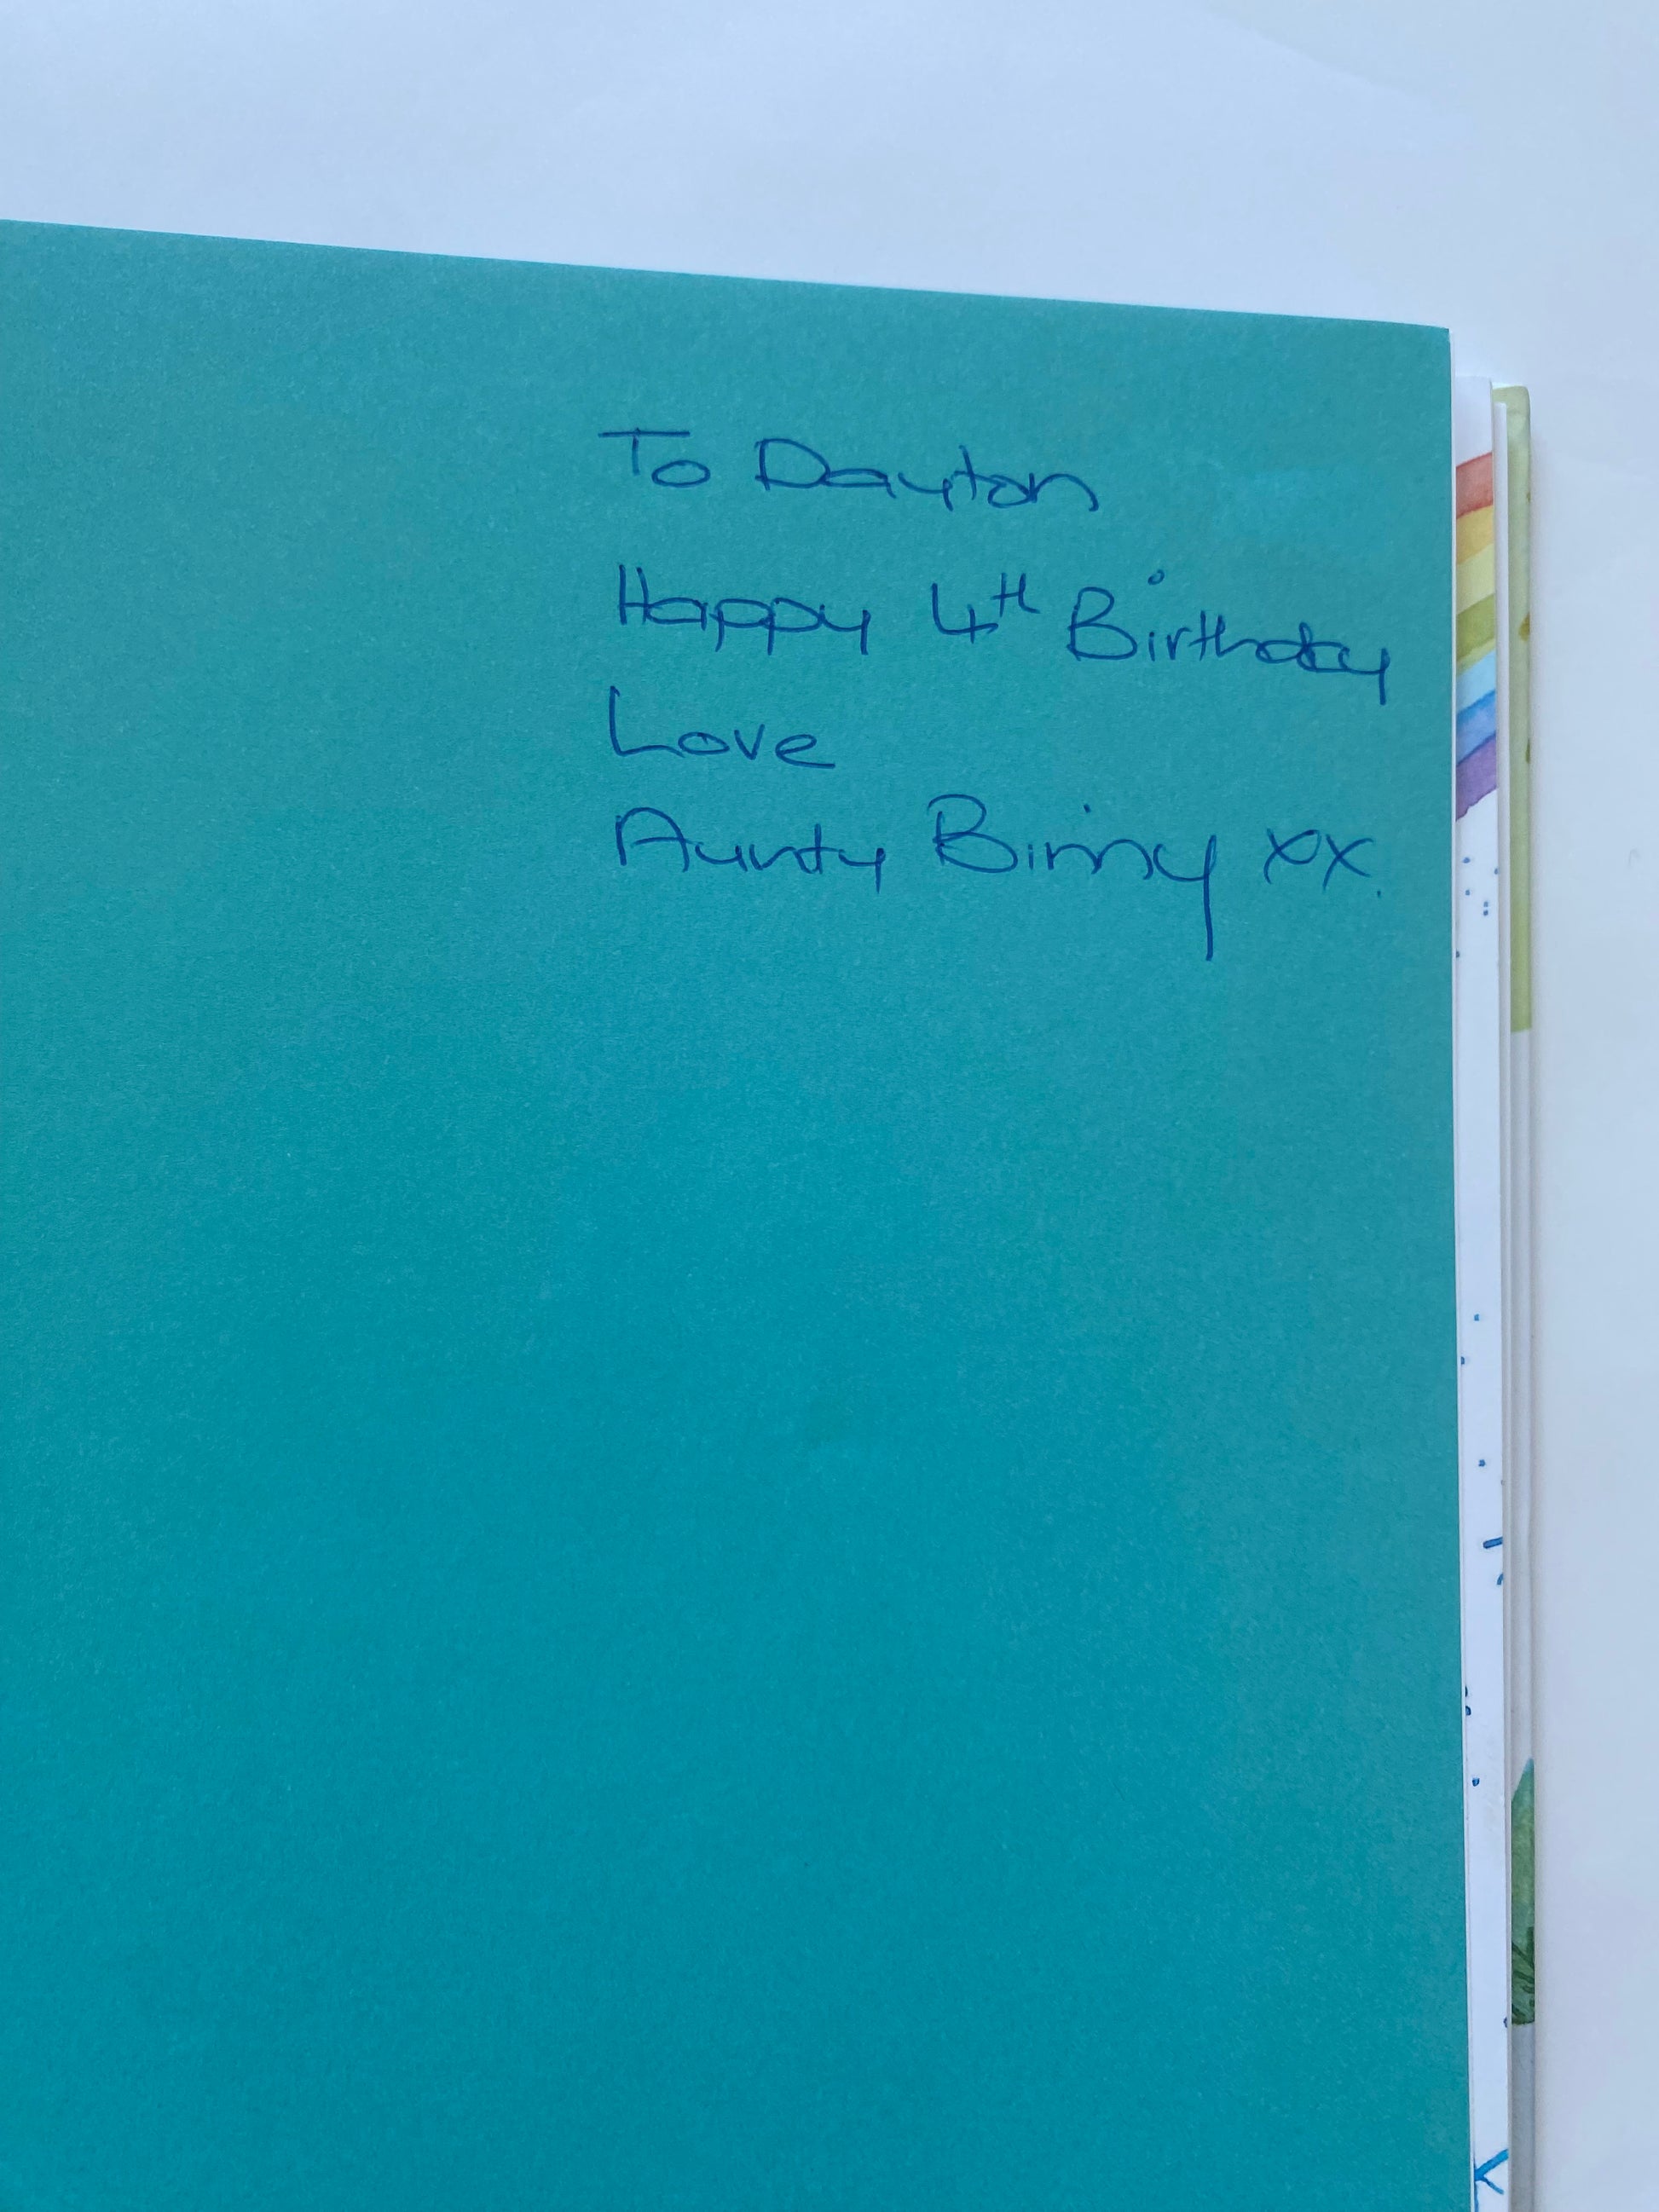 To Dayton
Happy 4th Birthday
Love
Aunty Binny xx.